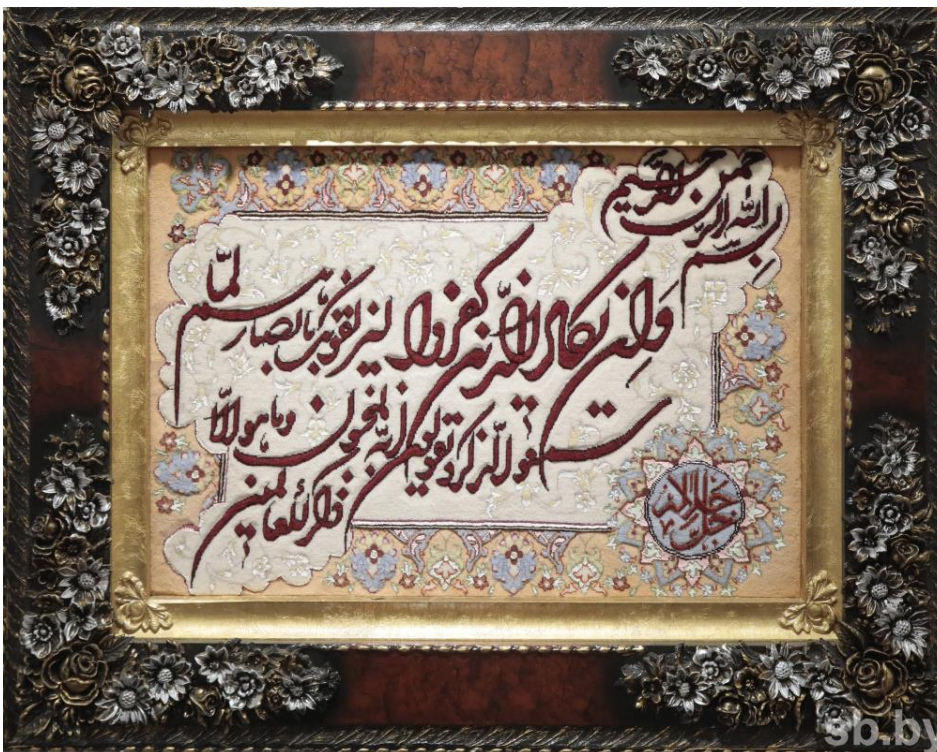 بسم الله الرحمن الرحیم
وان یکاد الذین کفروا لیزلقونک بابصارهم لما
سمعوا الذکر ویقولون انه لمجنون وما هو الا
ذکر للعالمین
جل جلاله
sb.by